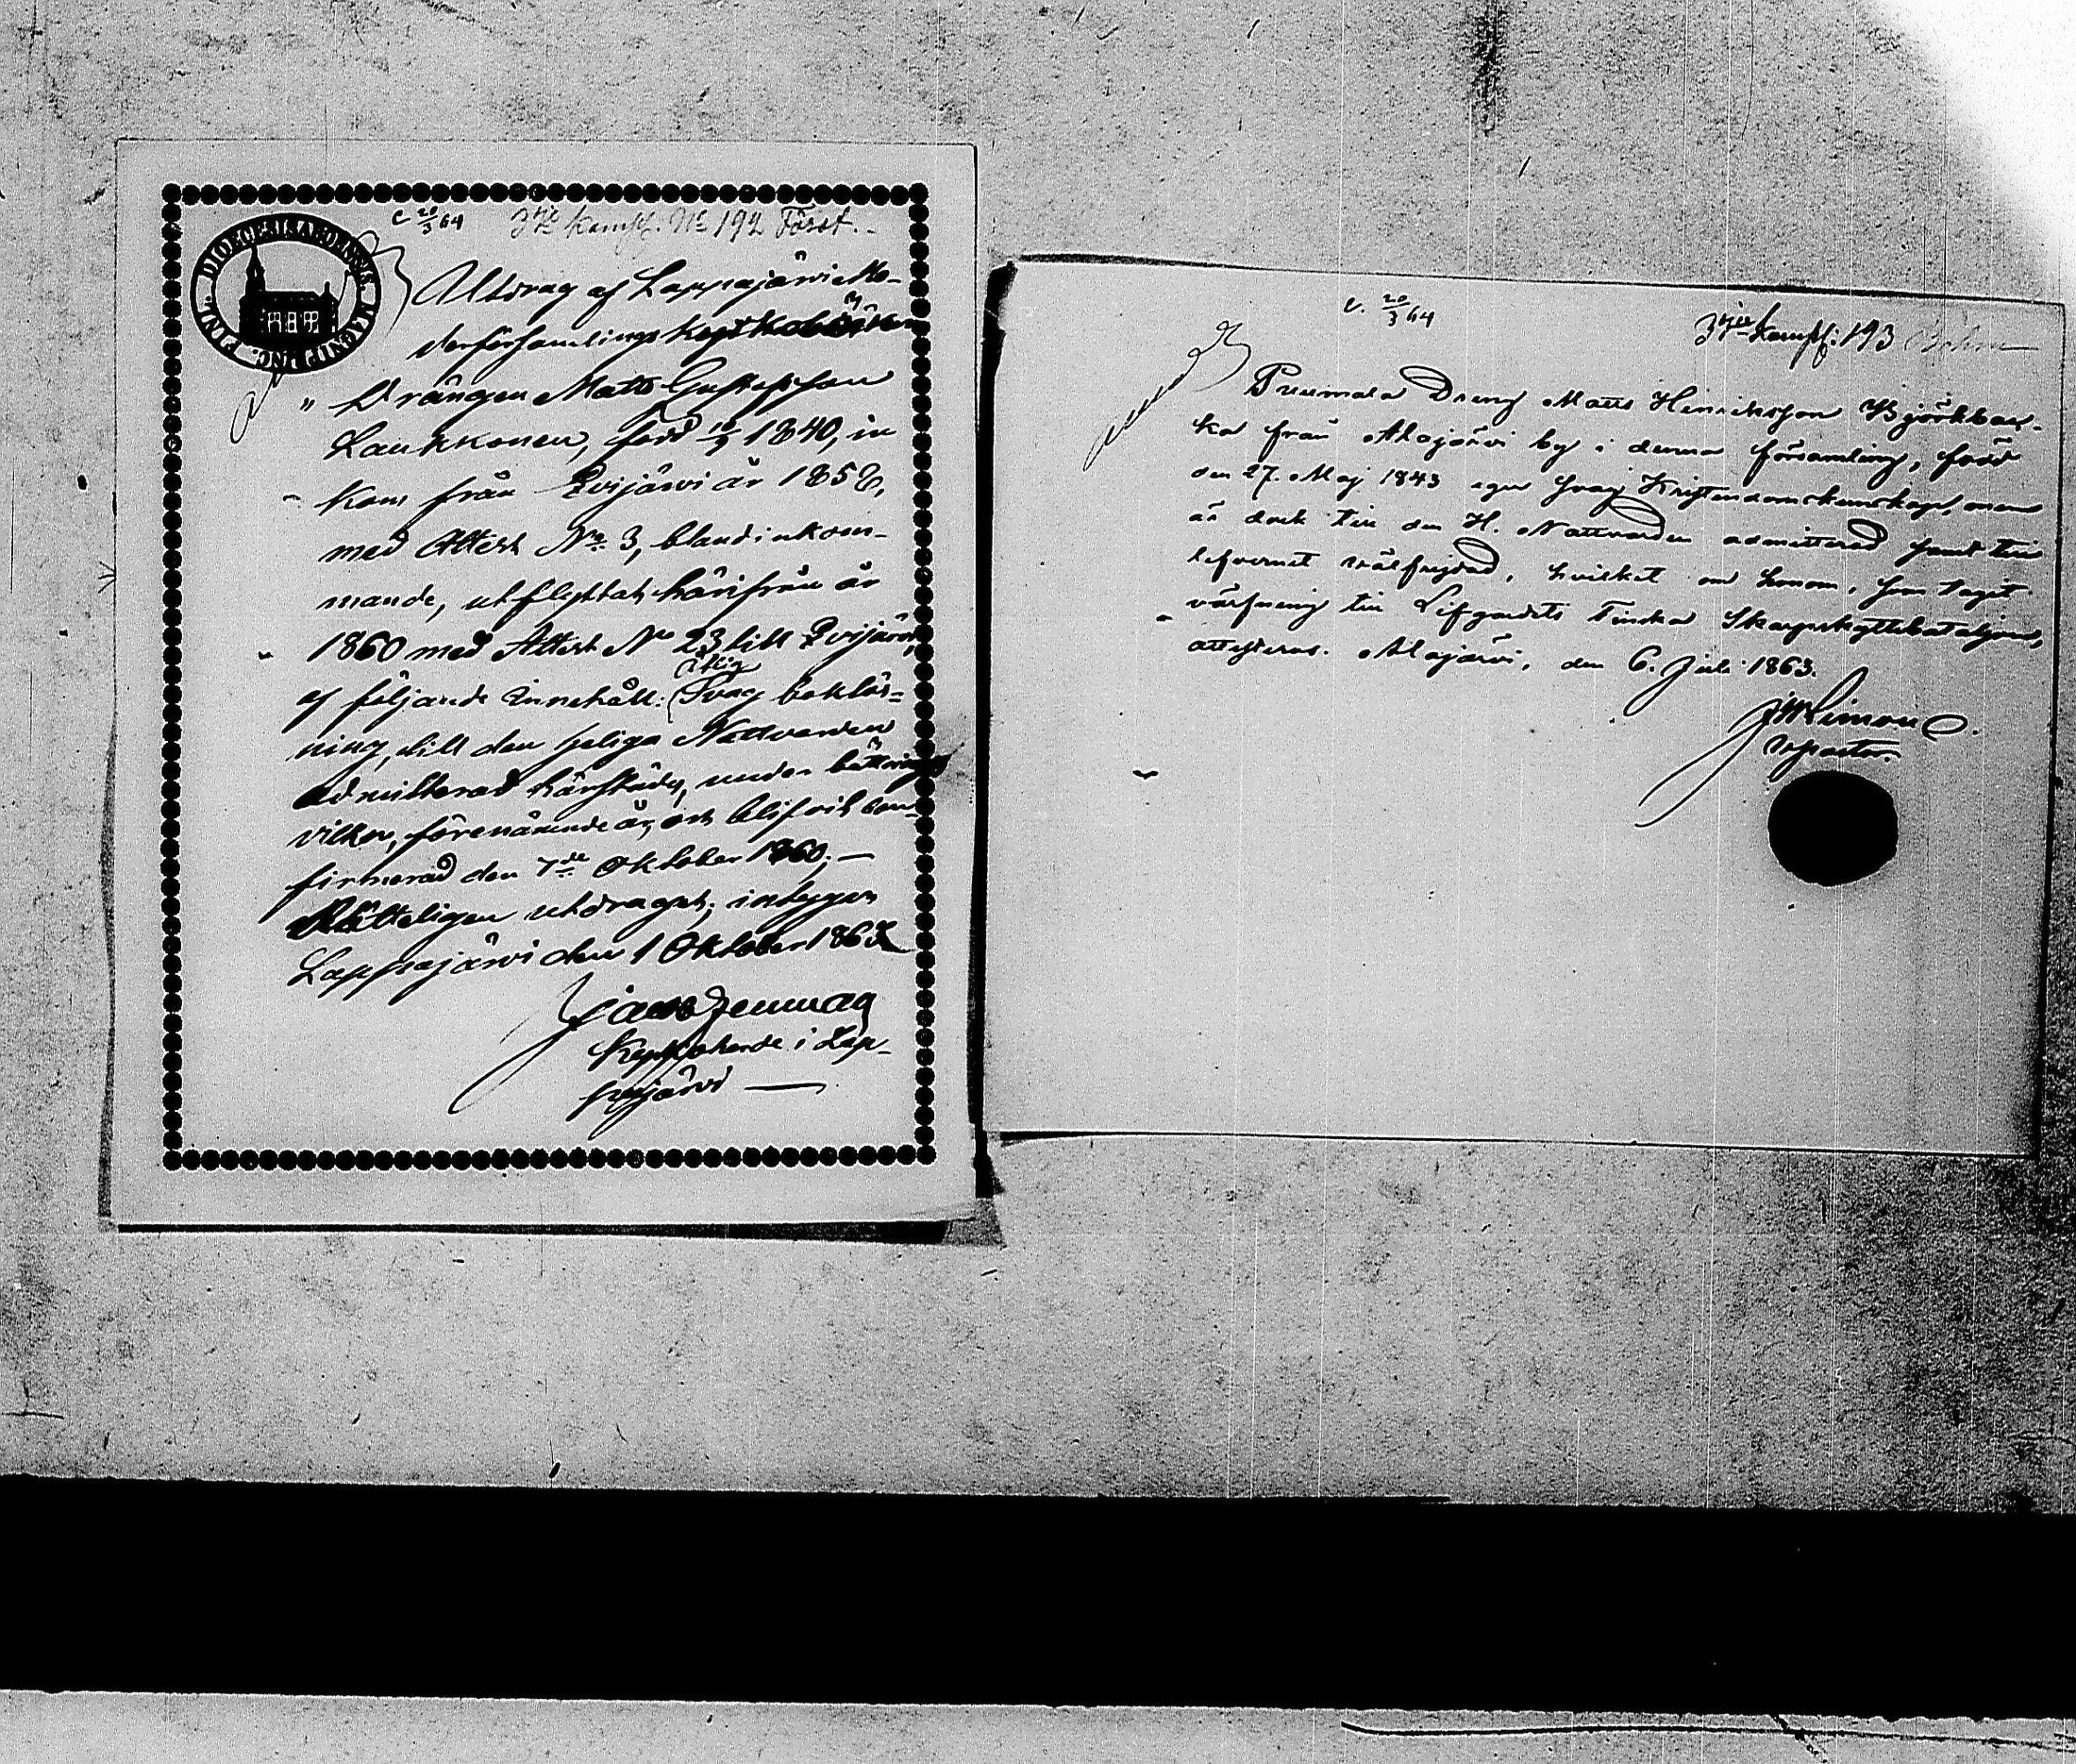 c 20/3 64 3dje Komp. No 192 Först.
DIOECESIS ABOENSIS. MAGNI PRINC. FINL.
Utdrag af Lappajärvi Mo-
derförsamlings
Drängen Matts Gustafsson
Laukkonen, född 1840, in
kom från Evijärvi år 1858,
med Attest No 3, bland inkom-
mande, utflyttat härifrån år
1860 med Attest No 23 till Evijärvi,
af följande innehåll: Svag bekläs-
ning, till den heliga Nattvarden
admitterad härstädes, under bättrings
vilkor, förenämnde år, och blifvit con-
firmerad den 7de Oktober 1860; —
Rätteligen utdraget; intygar
Lappajärvi den 1 Oktober 1863
Kyrkoherde i Lap-
pajärvi —
c. 20/3 64
3dje Komp: 193
Dreng Matts Henriksson Björkbac-
ka från Alajärvi by i denna församling, född
den 27. Maj 1843 eger svag Kristendomskunskap, men
är dock till den H. Nattvarden admitterad samt till
lefvernet välfrejdad, hvilket om honom, som tagit
värfning till Lifgardets Finska Skarpskyttebataljon,
attesteras. Alajärvi, den 6. Juli 1863.
J W Limon
v pastor.